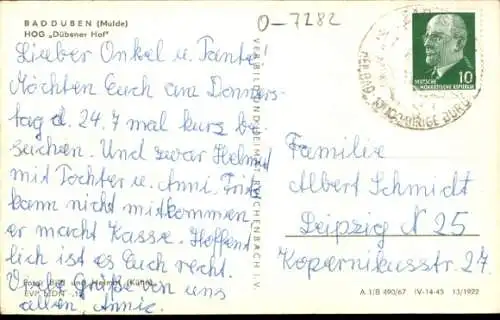 BAD DUBEN (Mulde)
HOG „Dübener Hof"
O-7282
Lieber Onkel u. Tante!
Möchten Euch am Donners-
tag d. 24.7 mal kurz be-
suchen. Und zwar Helmut
mit Tochter u. Anni. Fritz
kann nicht mitkommen
er macht Kasse. Hoffent
lich ist es Euch recht.
Viele Grüße von uns
allen, Annie.
Foto: Bild und Heimat (Kühn)
EVP MDN
VERLAG BILD UND HEIMAT REICHENBACH I. V.
DEUTSCHE
DEMOKRATISCHE REPUBLIK
10
JÄHRIGE BURG
Familie
Albert Schmidt
Leipzig N 25
Kopernikusstr. 27.
A 1/B 490/67 IV-14-45 13/1922